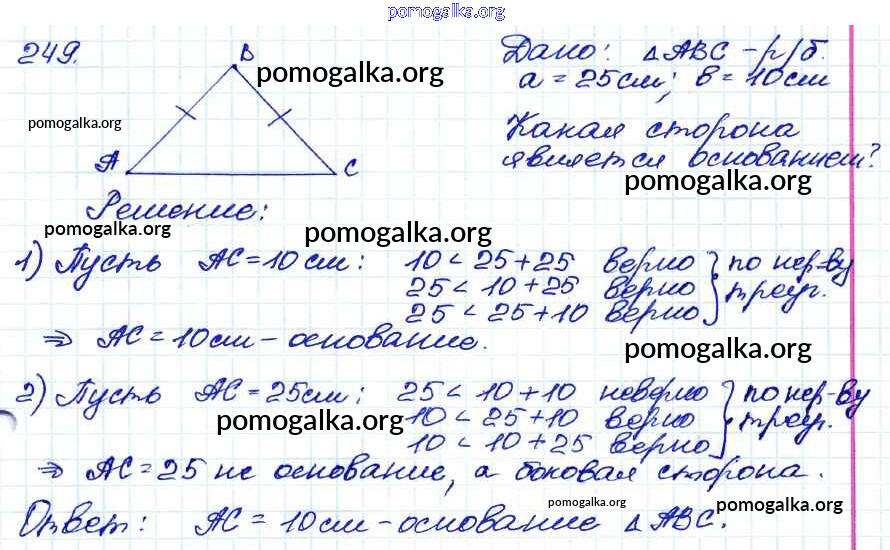 pomogalka.org
249.
B
A
C
pomogalka.org
pomogalka.org
Дано: △ABC – р/б.
a = 25 см; в = 10 см
Какая сторона
является основанием?
pomogalka.org
Решение:
pomogalka.org
pomogalka.org
1) Пусть AC = 10 см: 10 < 25 + 25 верно } по нер-ву
25 < 10 + 25 верно треуг.
25 < 25 + 10 верно
⇒ AC = 10 см – основание.
pomogalka.org
2) Пусть AC = 25 см: 25 < 10 + 10 неверно } по нер-ву
pomogalka.org
10 < 25 + 10 верно треуг.
10 < 10 + 25 верно
⇒ AC = 25 не основание, а боковая сторона.
pomogalka.org
pomogalka.org
Ответ: AC = 10 см – основание △ABC.